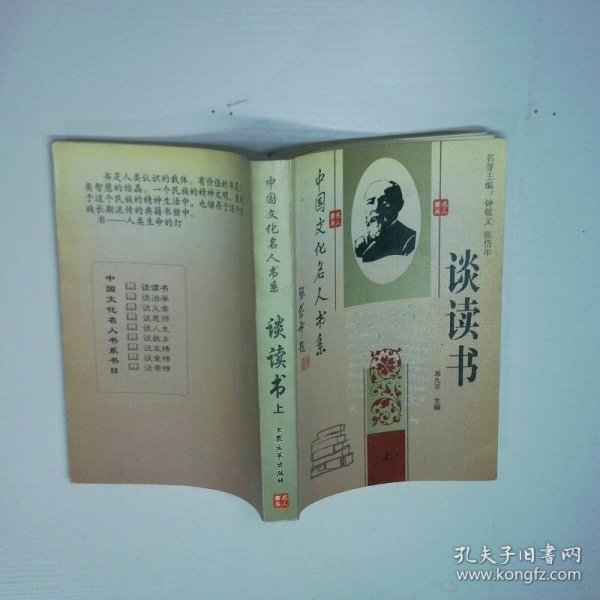 书是人类认识的载体。有价值的书是人
类智慧的结晶。一个民族的精神文明，表现
于这个民族的精神生活中，也储存于这个民
族长期流传的典籍书册中。
书——人类生命的灯
中国文化名人书系书目
谈读书
谈治学
谈父亲
谈恩师
谈人生
谈故乡
谈友情
谈爱情
谈亲情
中国文化名人书系
谈读书
上
大众文艺出版社
名人书系
中国文化名人书系
张岱年题
名人书系
名人书系
名誉主编：钟敬文 张岱年
谈读书
邓九平 主编
上
孔夫子旧书网
www.kongfz.com